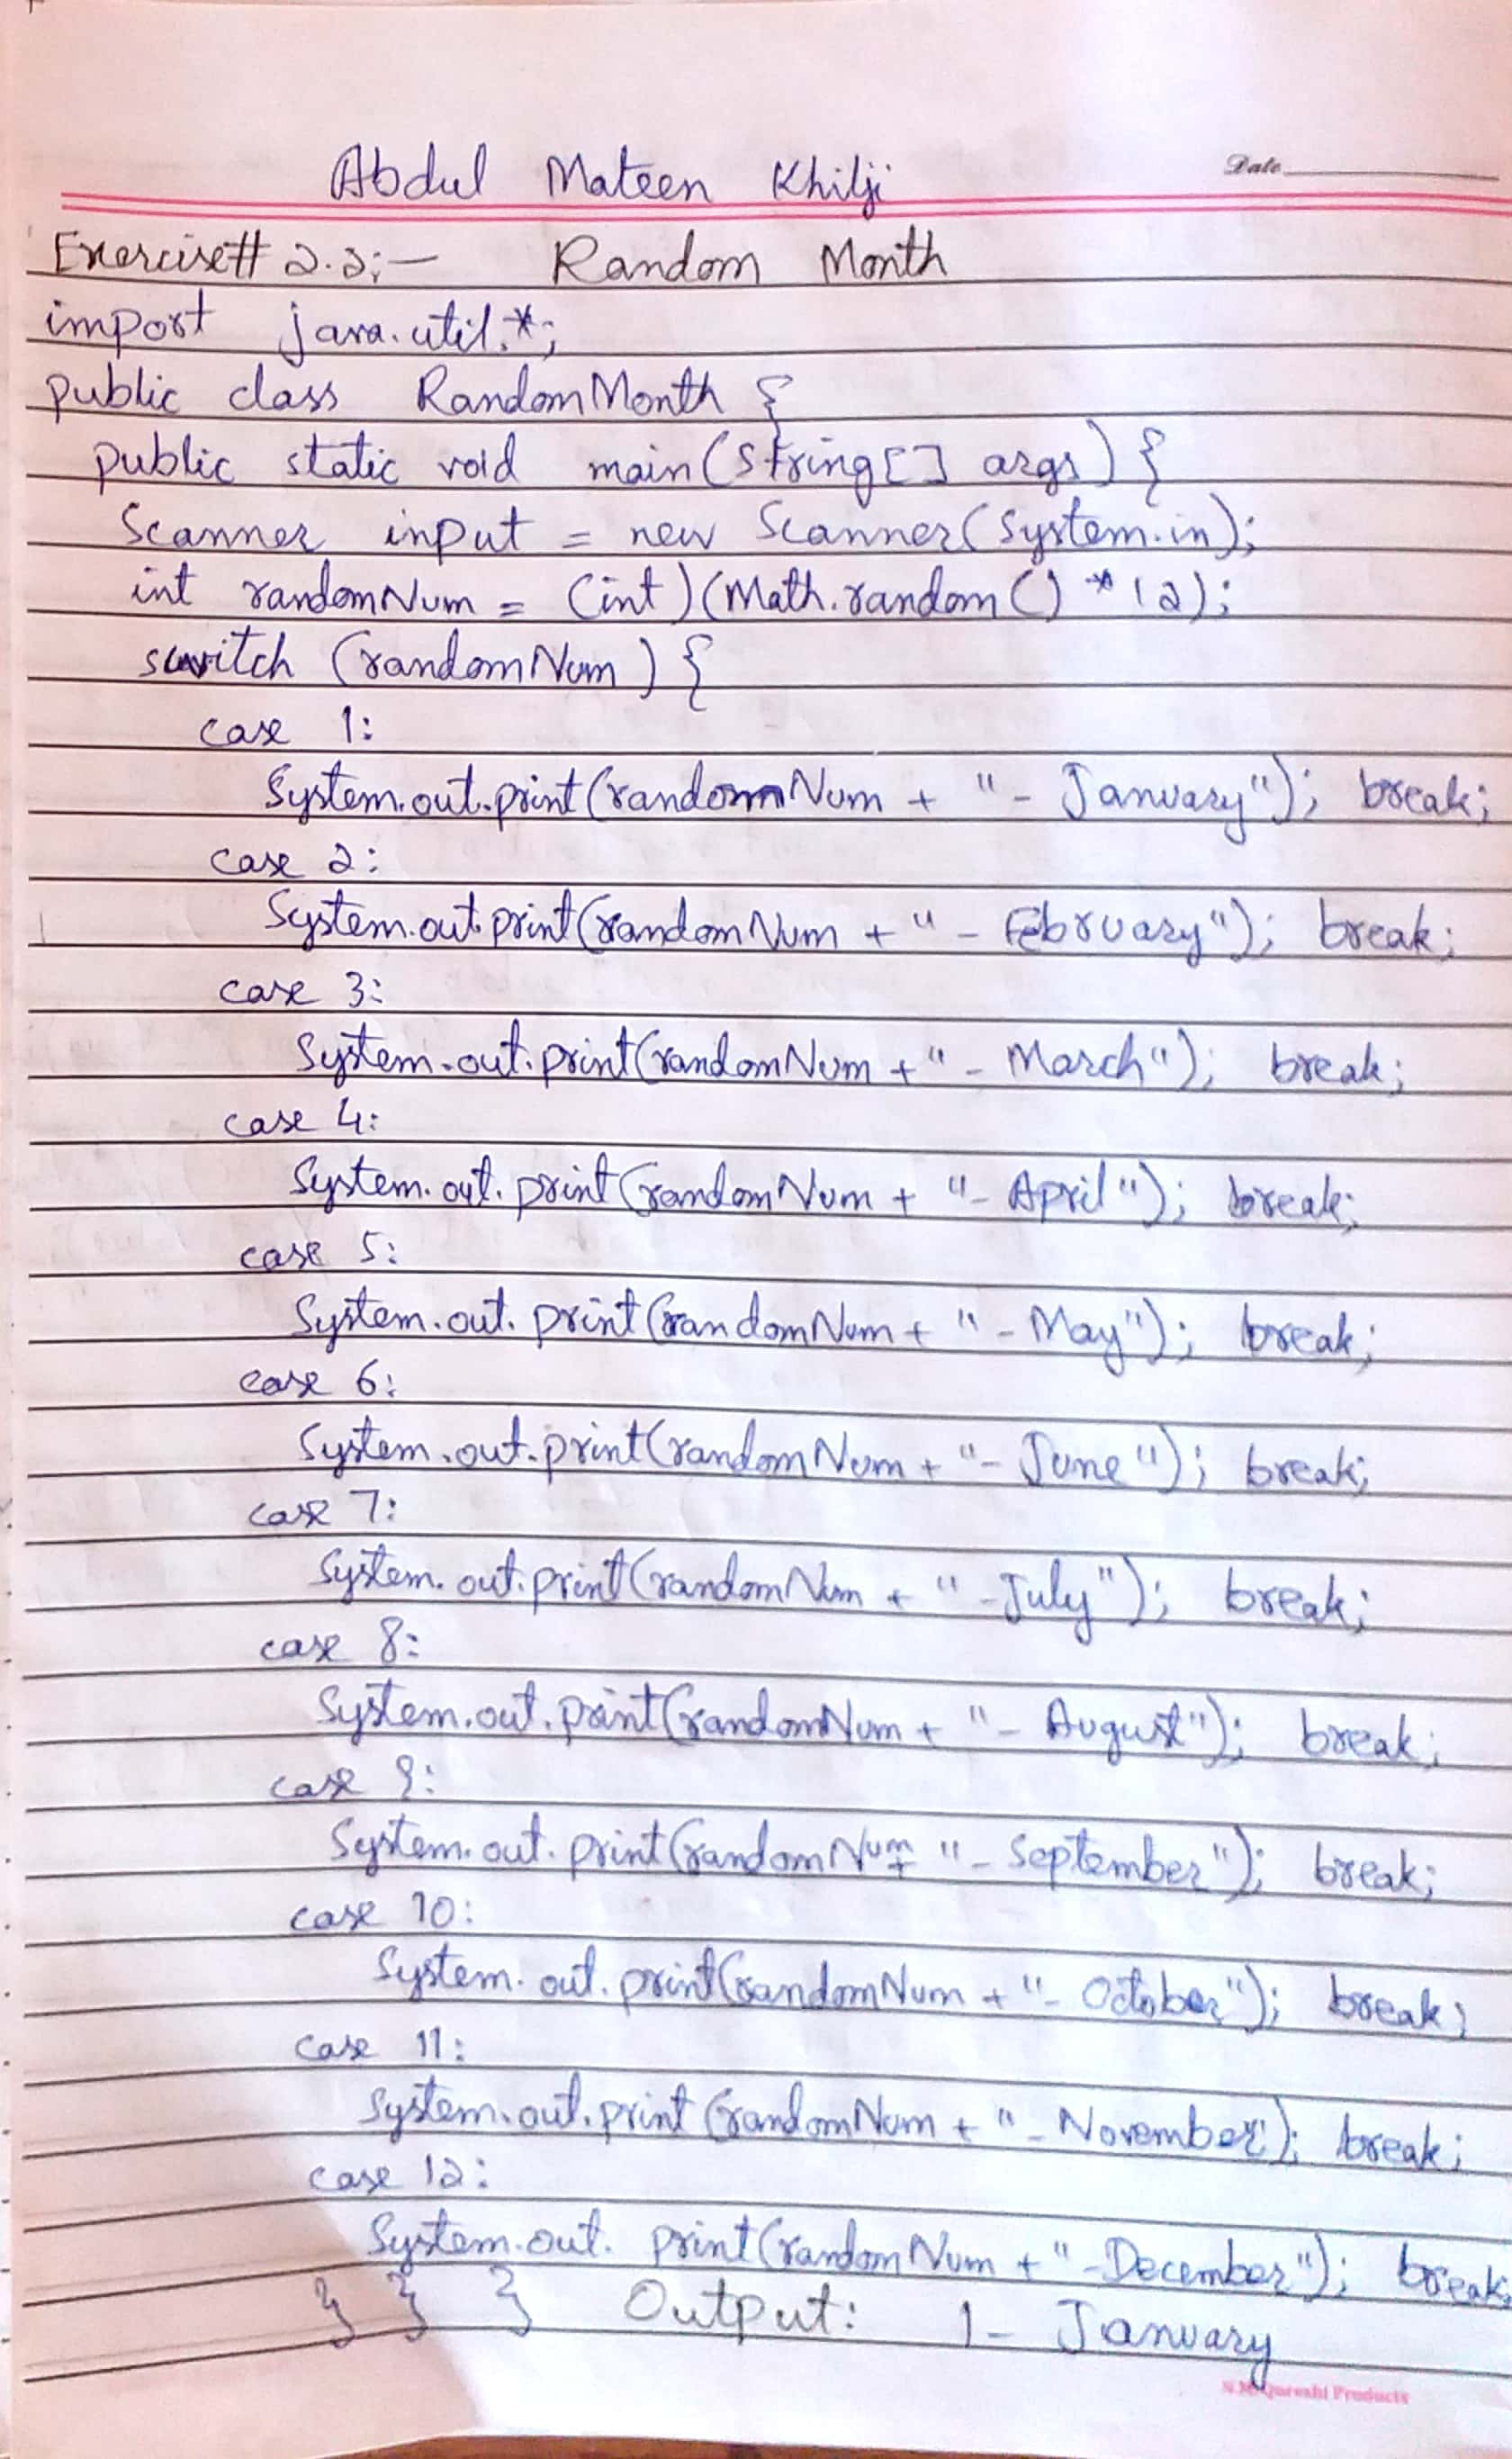 Abdul Mateen Khilji
Date
Exercise# 2.2:- Random Month
import java.util.*;
public class RandomMonth {
public static void main(String[] args) {
Scanner input = new Scanner(System.in);
int randomNum = (int)(Math.random() * 12);
switch (randomNum) {
case 1:
System.out.print(randomNum + "- January"); break;
case 2:
System.out.print(randomNum + "- February"); break;
case 3:
System.out.print(randomNum + "- March"); break;
case 4:
System.out.print(randomNum + "- April"); break;
case 5:
System.out.print(randomNum + "- May"); break;
case 6:
System.out.print(randomNum + "- June"); break;
case 7:
System.out.print(randomNum + "- July"); break;
case 8:
System.out.print(randomNum + "- August"); break;
case 9:
System.out.print(randomNum + "- September"); break;
case 10:
System.out.print(randomNum + "- October"); break;
case 11:
System.out.print(randomNum + "- November"); break;
case 12:
System.out.print(randomNum + "- December"); break;
} } } Output: 1- January
Qureshi Products